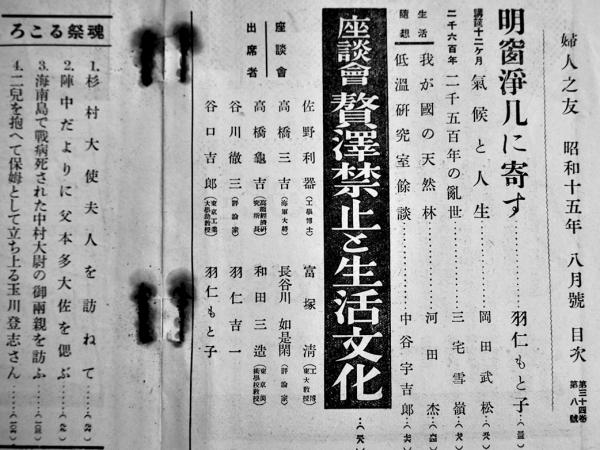 婦人之友 昭和十五年 八月號 目次
第三十四卷
第八號
明窗淨几に寄す……羽仁もと子
講談十二ヶ月 氣候と人生……岡田武松
二千六百年 二千五百年の亂世……三宅雪嶺
生活 我が國の天然林……河田杰
隨想 低溫研究室餘談……中谷宇吉郎
座談會 贅澤禁止と生活文化
座談會
出席者
佐野利器(工學博士)
富塚淸(工博 東大敎授)
高橋三吉(海軍大將)
長谷川如是閑(評論家)
高橋龜吉(高橋經濟硏究所)
和田三造(東京美術學校敎授)
谷川徹三(評論家)
羽仁吉一
谷口吉郎(東京工業大學助敎授)
羽仁もと子
魂祭るころ
1.杉村大使夫人を訪ねて
2.陣中だよりに父本多大佐を偲ぶ
3.海南島で戰病死された中村大尉の御兩親を訪ふ
4.二兒を抱へて保姆として立ち上る玉川登志さん